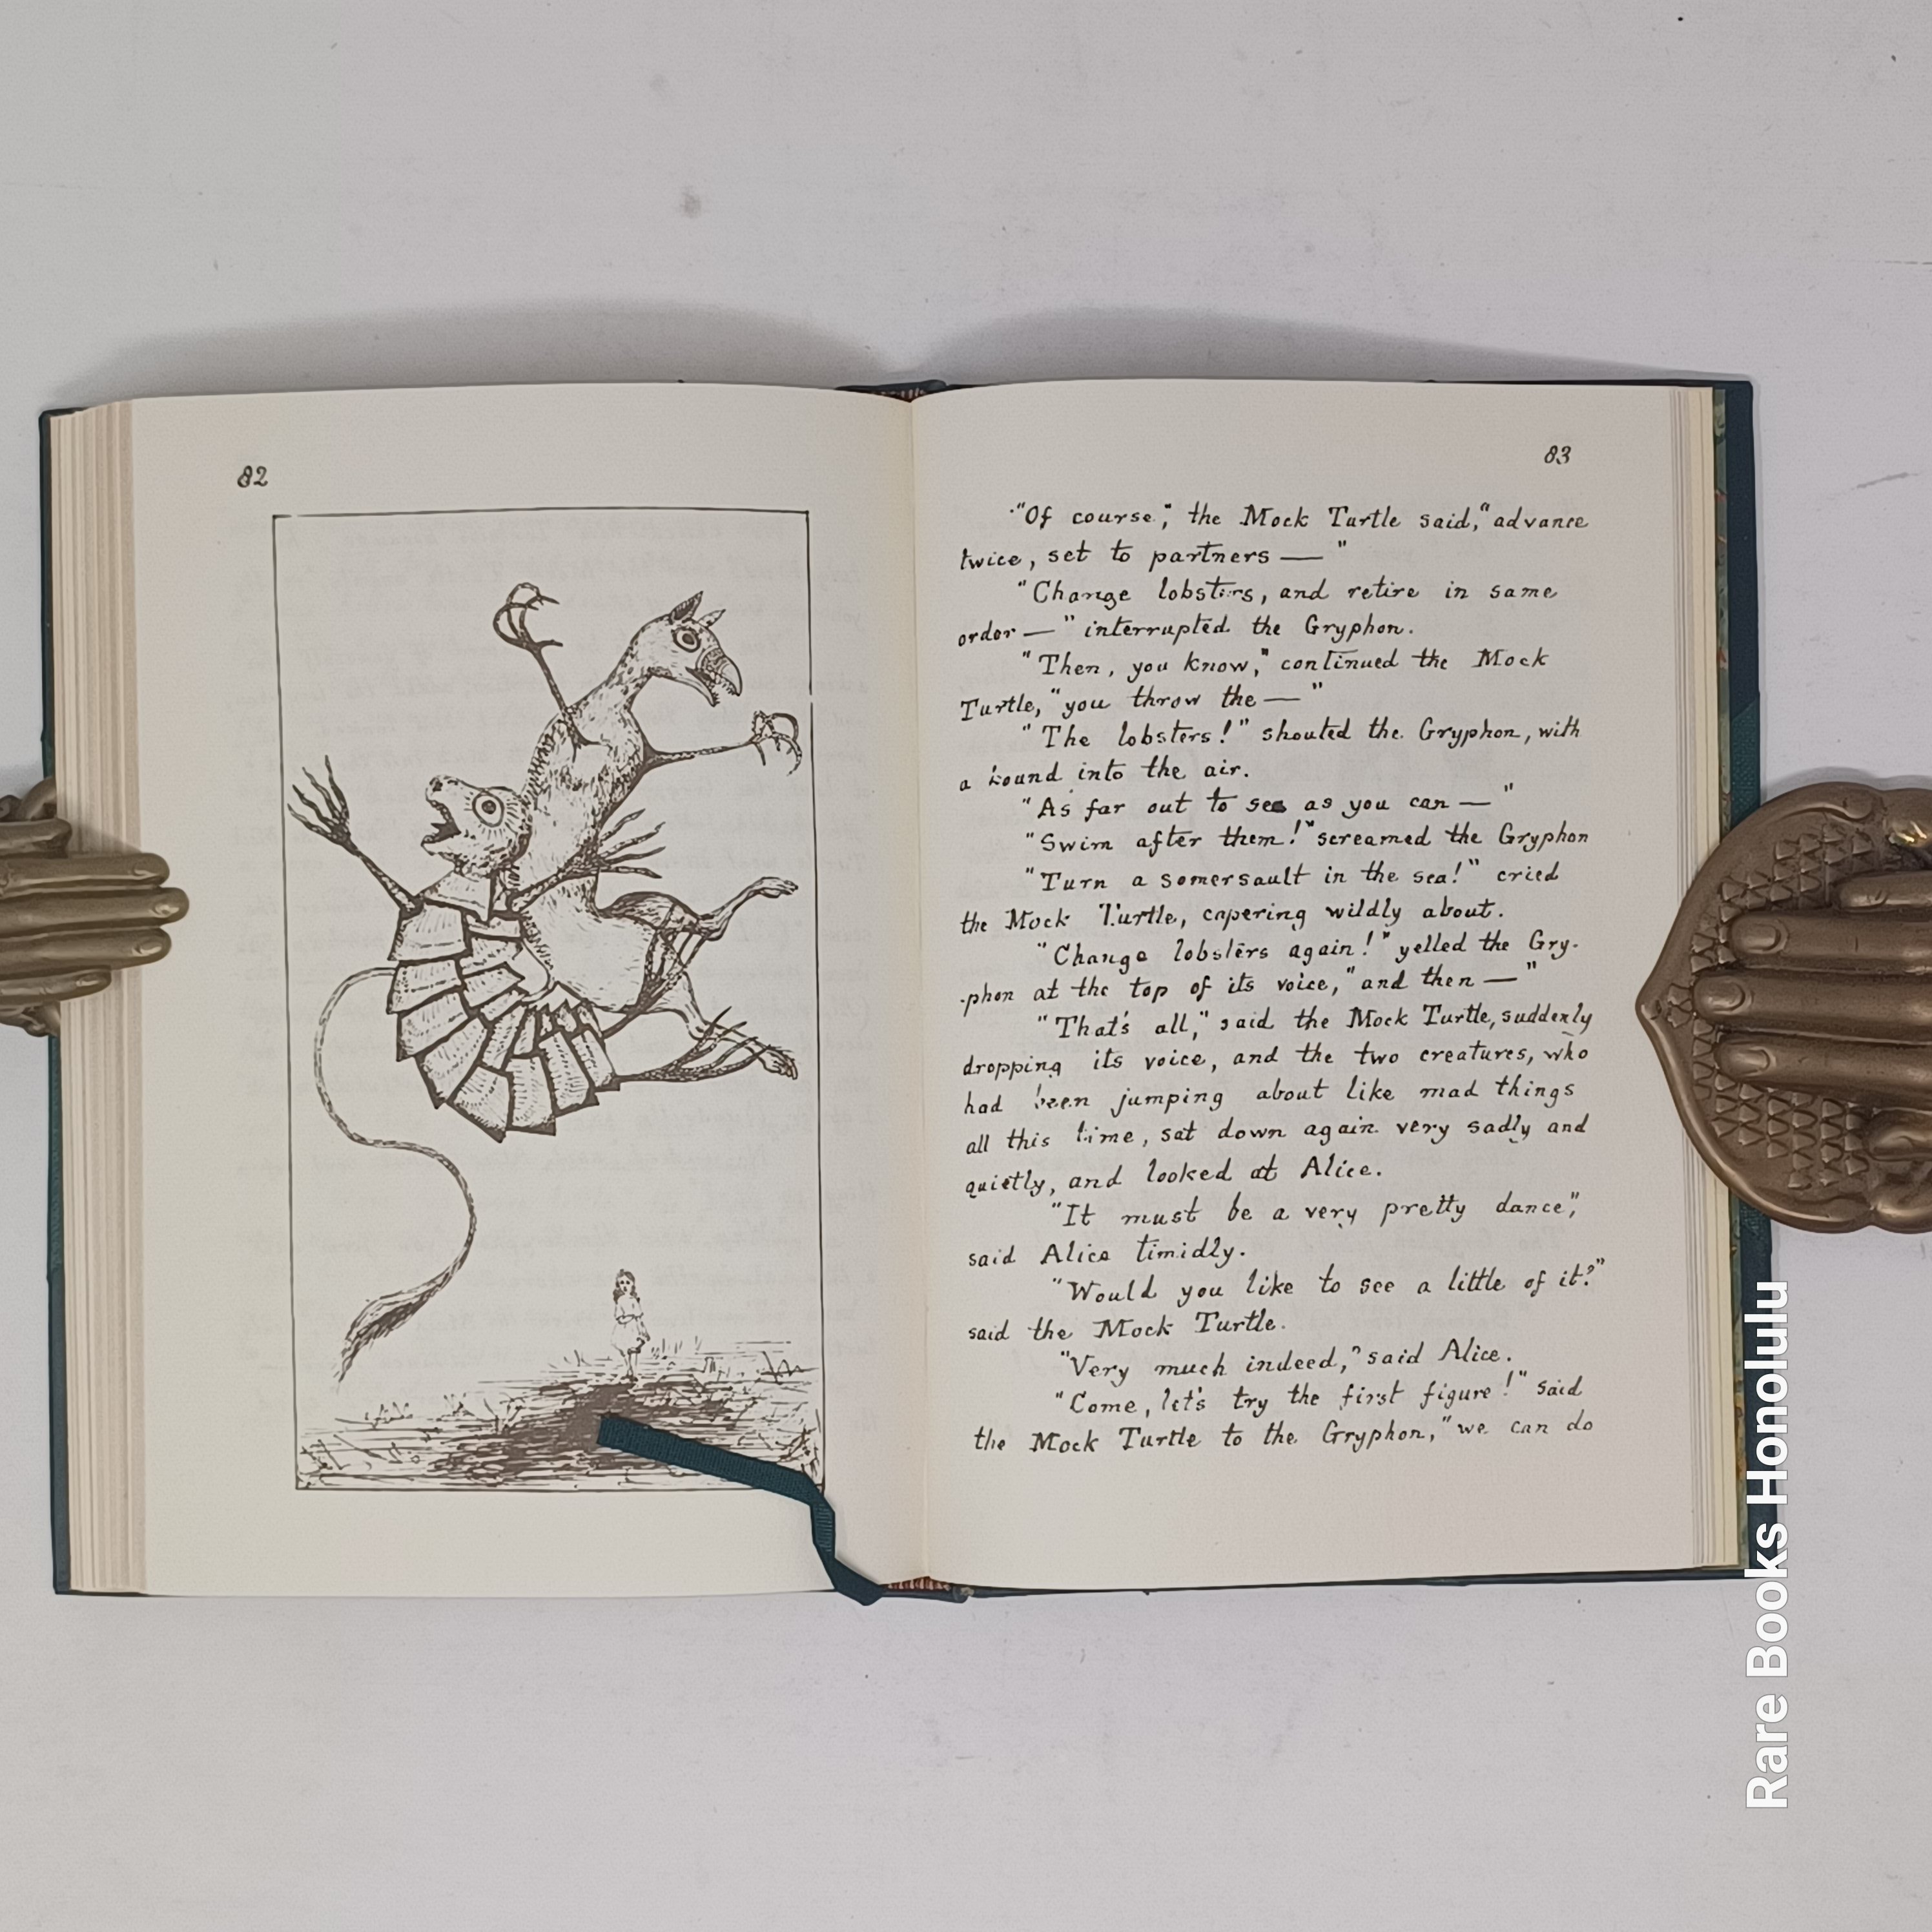 82
83
"Of course," the Mock Turtle said, "advance
twice, set to partners — "
"Change lobsters, and retire in same
order — " interrupted the Gryphon.
"Then, you know," continued the Mock
Turtle, "you throw the — "
"The lobsters!" shouted the Gryphon, with
a bound into the air.
"As far out to sea as you can — "
"Swim after them!" screamed the Gryphon
"Turn a somersault in the sea!" cried
the Mock Turtle, capering wildly about.
"Change lobsters again!" yelled the Gry-
-phon at the top of its voice, "and then — "
"That's all," said the Mock Turtle, suddenly
dropping its voice, and the two creatures, who
had been jumping about like mad things
all this time, sat down again very sadly and
quietly, and looked at Alice.
"It must be a very pretty dance,"
said Alice timidly.
"Would you like to see a little of it?"
said the Mock Turtle.
"Very much indeed," said Alice.
"Come, let's try the first figure!" said
the Mock Turtle to the Gryphon, "we can do
Rare Books Honolulu